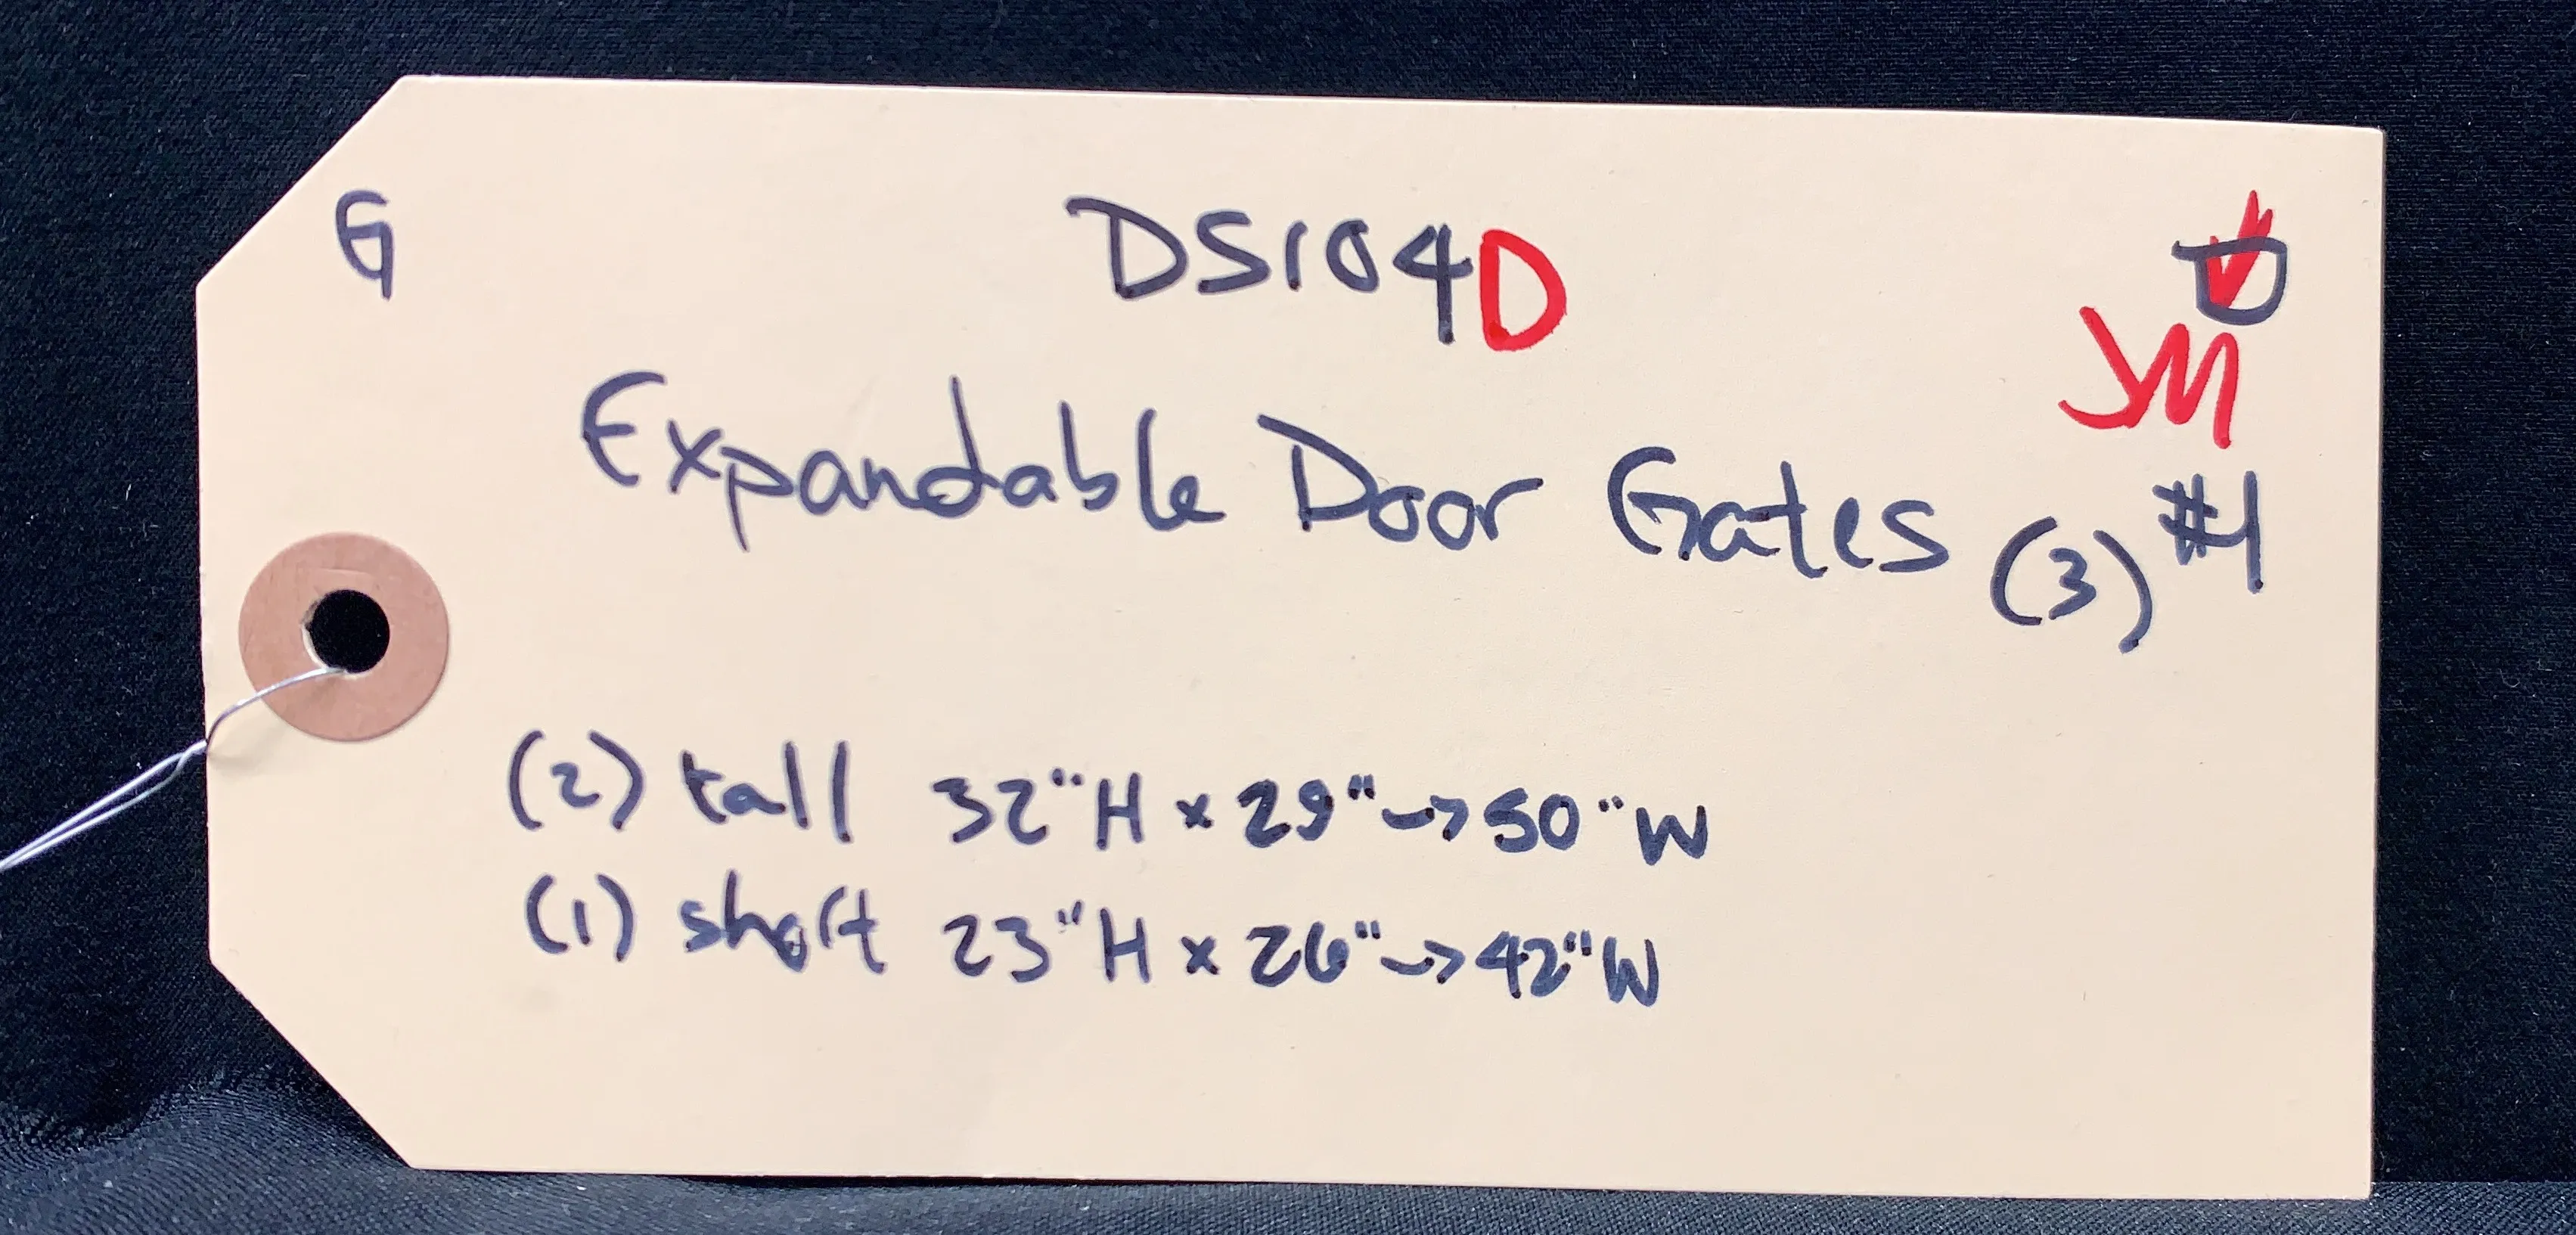 G DS104D D
JM
Expandable Door Gates (3) #1
(2) tall 32"H x 29"->50"W
(1) short 23"H x 26"->42"W